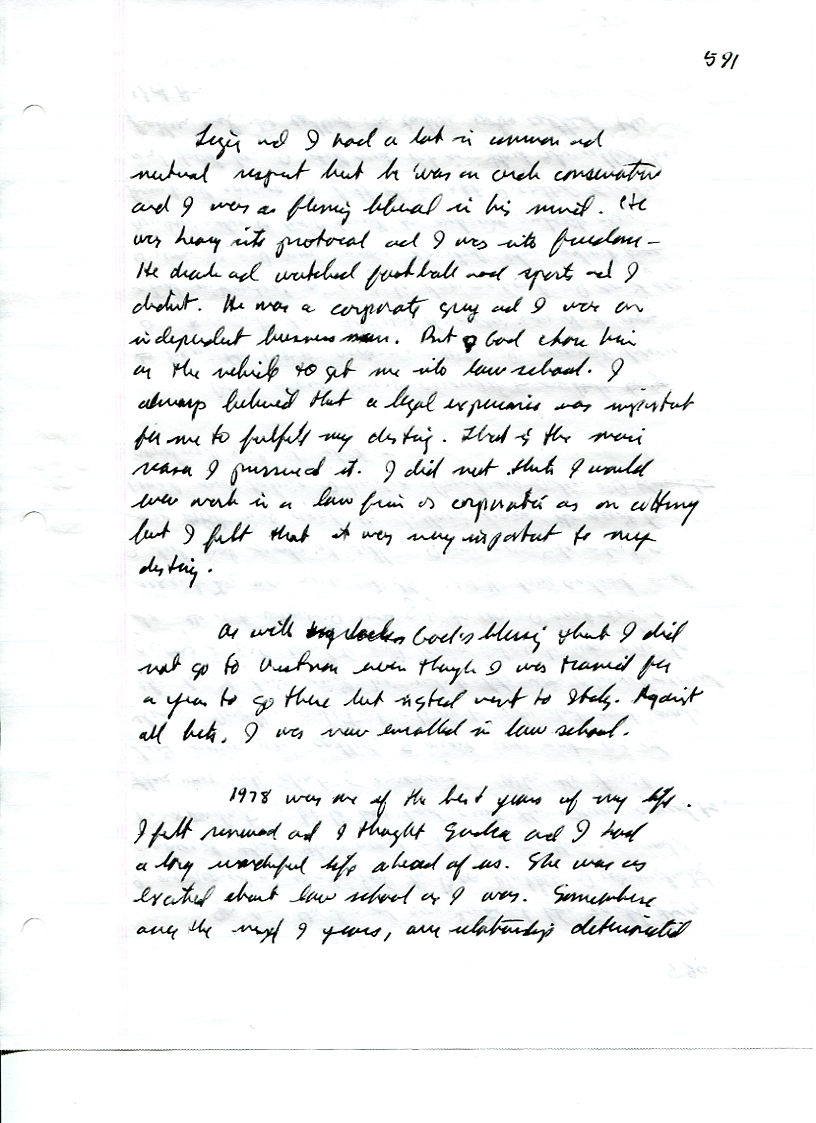 591
and I had a lot in common and
mutual respect but he was an arch conservative
and I was a flaming liberal in his mind. He
was heavy into protocal and I was into freedom -
He drank and watched football and sports and I
didn't. He was a corporate guy and I was an
independent business man. But God chose him
as the vehicle to get me into law school. I
always believed that a legal experience was important
for me to fulfill my destiny. That is the main
reason I pursued it. I did not think I would
ever work in a law firm or corporation as an attorney
but I felt that it was very important to my
destiny.
As with God's blessing that I did
not go to Vietnam even though I was trained for
a year to go there but instead went to Italy. Against
all bets, I was now enrolled in law school.
1978 was one of the best years of my life.
I felt renewed and I thought and I had
a long wonderful life ahead of us. She was as
excited about law school as I was. Somewhere
over the next 9 years, our relationship deteriorated